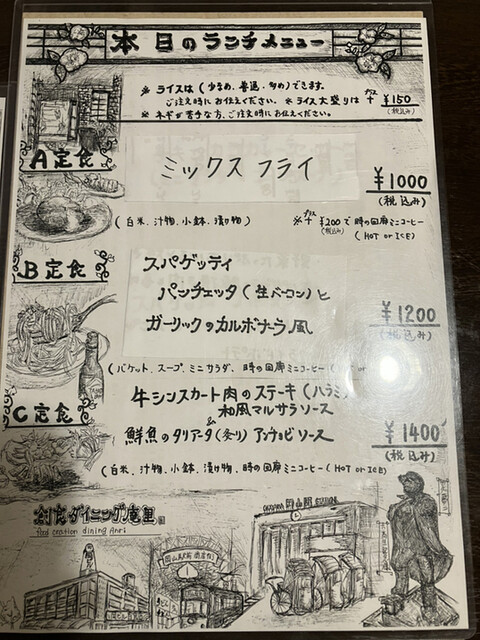 本日のランチメニュー
※ ライスは(少なめ、普通、多め)できます。
ご注文時にお伝えください。 ※ライス大盛りは プラス + ¥150 (税込み)
※ ネギが苦手な方、ご注文時にお伝えください。
A定食
ミックスフライ
¥1000
(税込み)
(白米、汁物、小鉢、漬け物)
※プラス + ¥200で 時の回廊ミニコーヒー
(税込み)
(HOT or ICE)
B定食
スパゲッティ
パンチェッタ(生ベーコン)と
ガーリックのカルボナーラ風
¥1200
(税込み)
(バケット、スープ、ミニサラダ、時の回廊ミニコーヒー(
C定食
牛シンスカート肉のステーキ(ハラミ)
和風マルサラソース
&
鮮魚のタリアータ(炙り) アンチョビソース
¥1400
(税込み)
(白米、汁物、小鉢、漬け物、時の回廊ミニコーヒー(HOT or ICE)
創食ダイニング庵里
food creation dining Anri
岡山駅前商店街
OKAYAMA 岡山駅 STATION